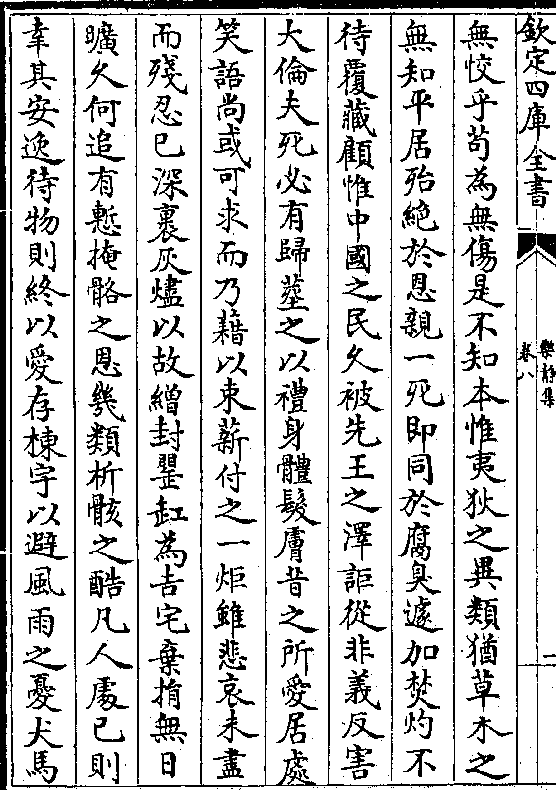 欽定四庫全書
樂靜集
卷八
一
無恔乎苟為無傷是不知本惟夷狄之異類猶草木之
無知平居殆絕於恩親一死即同於腐臭遽加焚灼不
待覆藏顧惟中國之民久被先王之澤詎從非義反害
大倫夫死必有歸塟之以禮身體髮膚昔之所愛居處
笑語尚或可求而乃藉以束薪付之一炬雖悲哀未盡
而殘忍已深裹灰燼以故繒封罌缶為吉宅棄捐無日
曠久何追有慙掩骼之恩幾類析骸之酷凡人處已則
幸其安逸待物則終以愛存棟宇以避風雨之憂犬馬